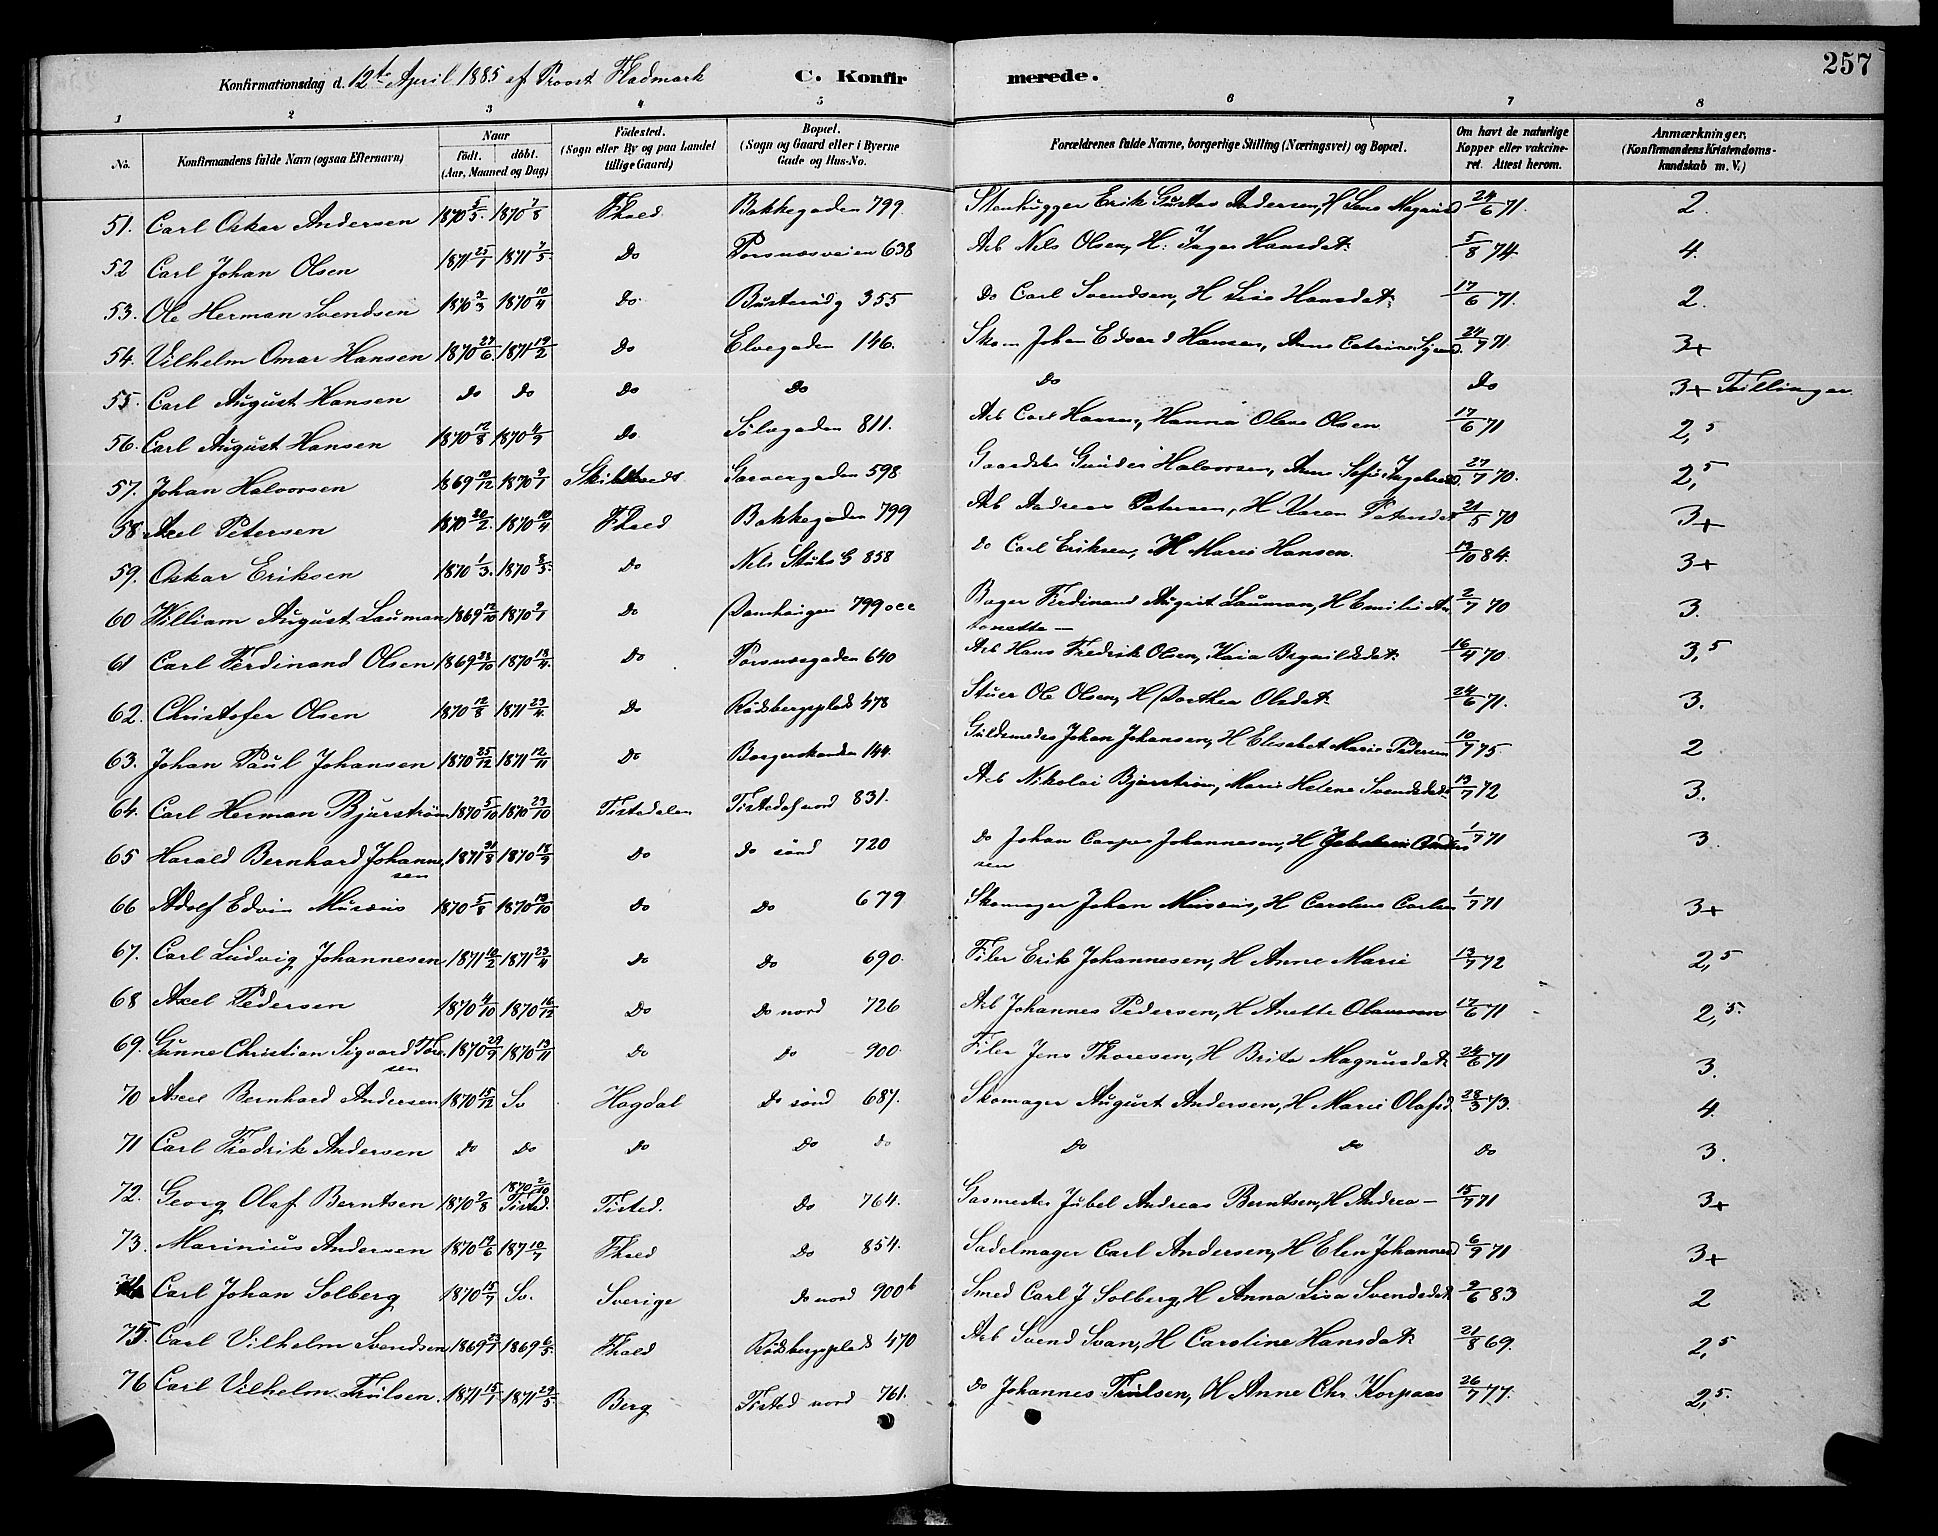 257
Konfirmationsdag d. 12te April 1885 af Provst Fladmark C. Konfirmerede.
1 2 3 4 5 6 7 8
No. Konfirmandens fulde Navn (ogsaa Efternavn) Naar födt. döbt. (Aar, Maaned og Dag) Födested. (Sogn eller By og paa Landet tillige Gaard) Bopæl. (Sogn og Gaard eller i Byerne Gade og Hus-No. Forældrenes fulde Navne, borgerlige Stilling (Næringsvei) og Bopæl. Om havt de naturlige Kopper eller vakcineret. Attest herom. Anmærkninger. (Konfirmandens Kristendomskundskab m. V.)
51. Carl Oskar Andersen 1870 5/5. 1870 7/8 Fhald Bakkegaden 799. Stenhugger Erik Gustav Andersen, H Lena 24/6 71. 2.
52 Carl Johan Olsen 1871 25/1 1871 7/5. Do Torsnæsveien 638 Arb Nels Olsen, H: Inger Hansdat: 5/8 74 4.
53. Ole Herman Svendsen 1870 2/3 1870 10/4 Do 355 Do Carl Svendsen, H Lisa Hansdat: 17/6 71. 2.
54. Vilhelm Omar Hansen 1870 27/6 1871 19/2 Do Elvegaden 146. Skom Johan Edvard Hansen, Anne Catrine 24/7 71. 3+
55. Carl August Hansen do do Do Do Do Do 3+ Tvillinger.
56. Carl August Hansen 1870 12/8 1870 4/9 Do Sølvgaden 811. Arb Carl Hansen, Hanna Olava Olsen 17/6 71 2,5
57. Johan Halvorsen 1869 10/12 1870 2/1 Garvergaden 598 Gunder Halvorsen, Anne Sofie 27/7 70. 2,5
58 Axel Petersen 1870 20/2. 1870 10/4 Fhald Bakkegaden 799 Arb Andreas Petersen, H Karen Petersdat 21/5 70 3+
59. Oskar Eriksen 1870 1/3. 1870 8/5. Do Nels Stubs G 858 Do Carl Eriksen, H Marie Hansen. 13/10 84. 3+
60 William August Lauman 1869 12/10 1870 2/1 Do Damhaugen 799 Bager Ferdinand August Lauman, H Emilie Antonette — 2/7 70 3.
61 Carl Ferdinand Olsen 1869 28/10 1870 18/4. Do Torsnæsgaden 640 Arb Hans Fredrik Olsen, Kaia 16/4 70. 3,5
62. Christofer Olsen 1870 12/8 1871 23/4. Do Rødsbergsplads 478 Stuer Ole Olsen, H Dorthea Olsdat: 24/6 71. 3.
63. Johan Paul Johansen 1870 25/12 1871 12/11 Do Borgerskandsen 144. Guldsmed Johan Johansen, H Elisabet Marie Pedersen 10/7 75. 2
64. Carl Herman Bjurstrøm 1870 5/10 1870 23/10 Tistedalen Tistedal nord 831. Arb Nikolai Bjurstrøm, Marie Helene Svendsdat 13/7 72 3.
65 Harald Bernhard Johannesen 1871 21/8 1870 18/9 Do Do sönd 720 Do Johan Casper Johannesen, H Andersen 1/7 71 3.
66 Adolf Edvin Musæus 1870 5/8 1870 19/10 Do Do 679 Skomager Johan Musæus, H Caroline Carlsen 1/7 71 3+
67. Carl Ludvig Johannesen 1871 10/2 1871 23/4 Do Do 690. Filer Erik Johannesen, H Anne Marie 13/7 72 2,5
68 Axel Pedersen 1870 4/10 1870 16/12 Do Do nord 726 Arb Johannes Pedersen, H Anette Olavesen 17/6 71 2,5.
69. Gunne Christian Sigvard Toresen 1870 29/9 1870 13/11 Do Do 900. Filer Jens Thoresen, H Brita Magnusdat: 24/6 71 3.
70 Axel Bernhard Andersen 1870 15/12 Sv Hogdal Do sönd 687. Skomager August Andersen, H Marie Olafsd. 28/3 73. 4.
71 Carl Fredrik Andersen do do Do Do do Do Do Do 3.
72. Georg Olaf Berntsen 1870 2/8 1870 2/10 Tisted. Tisted. Do 764. Gasmester Jubel Andreas Berntsen, H Andrea — 15/7 71 3+
73. Marinius Andersen 1870 19/6 187 10/7 Fhald Do 854. Sadelmager Carl Andersen, H Elen Johannesd 6/9 71 3+
74 Carl Johan Solberg 1870 15/7 Sv. Sverige Do nord 900b Smed Carl J Solberg, H Anna Lisa Svendsdat 2/6 83 2
75. Carl Vilhelm Svendsen 1869 23/1 1869 6/5. Fhald Rødsbergsplads 470 Arb Svend Svan, H Caroline Hansdat: 21/8 69. 2,5
76 Carl Vilhelm Trulsen. 1871 15/1 1871 29/5. Berg Tisted nord 761. Do Johannes Trulsen, H Anne Chr Korpaas 26/7 77. 2,5.